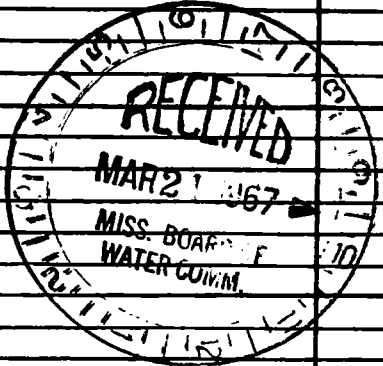 RECEIVED
MAR 21 1967
MISS. BOARD OF
WATER COMM.
6
7
8
9
10